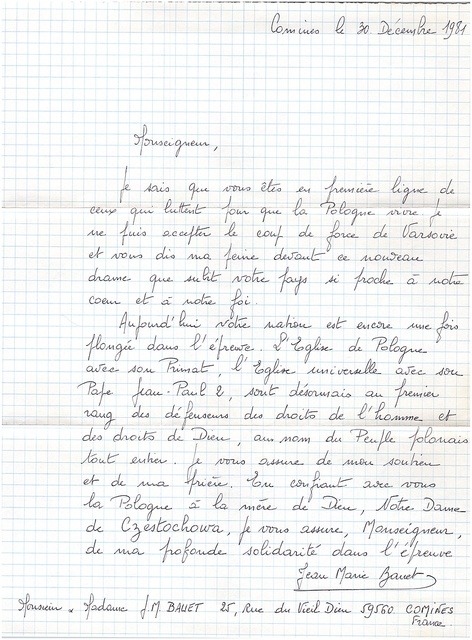 Comines le 30 Décembre 1981
Monseigneur,
Je sais que vous êtes en première ligne de
ceux qui luttent pour que la Pologne vive. Je
ne puis accepter le coup de force de Varsovie
et vous dis ma peine devant ce nouveau
drame que subit votre pays si proche à notre
coeur et à notre foi.
Aujourd'hui votre nation est encore une fois
plongée dans l'épreuve. L'Eglise de Pologne
avec son Primat, l'Eglise universelle avec son
Pape Jean-Paul 2, sont désormais au premier
rang des défenseurs des droits de l'homme et
des droits de Dieu, au nom du Peuple polonais
tout entier. Je vous assure de mon soutien
et de ma prière. En confiant avec vous
la Pologne à la mère de Dieu, Notre Dame
de Czestochowa, je vous assure, Monseigneur,
de ma profonde solidarité dans l'épreuve
Jean Marie Bauet
Monsieur & Madame J.M. BAUET 25, Rue du Vieil Dieu 59560 COMINES
France.